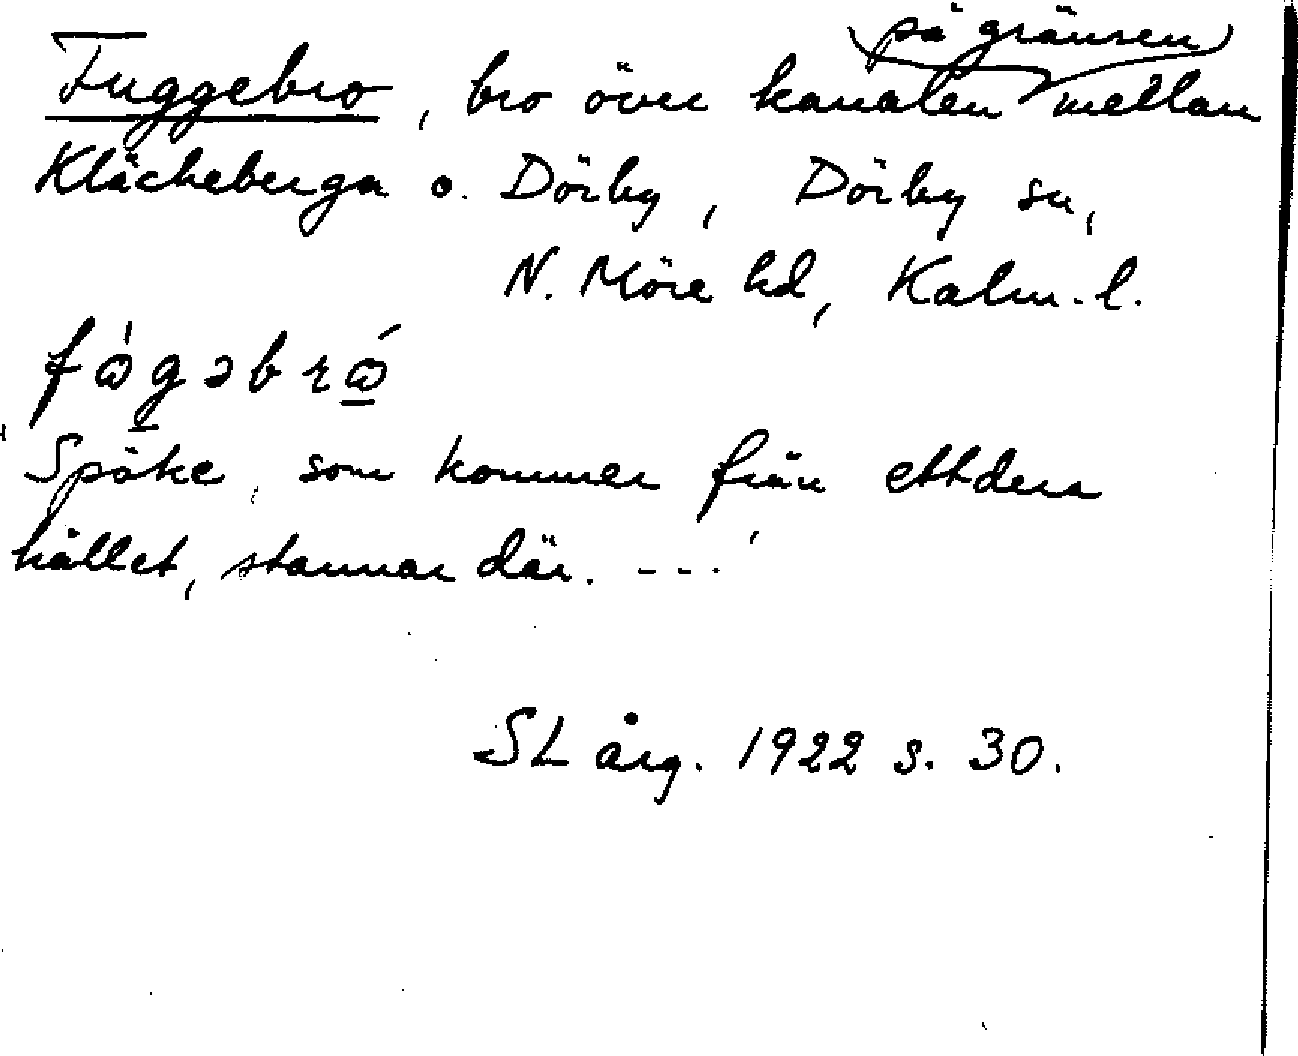 på gränsen
Fuggebro, bro över kanalen mellan
Kläckeberga o. Dörby, Dörby sn,
N. Möre hd, Kalm. l.
fògəbró
Spöke, som kommer från ettdera
hållet, stannar där. ---
SL årg. 1922 s. 30.